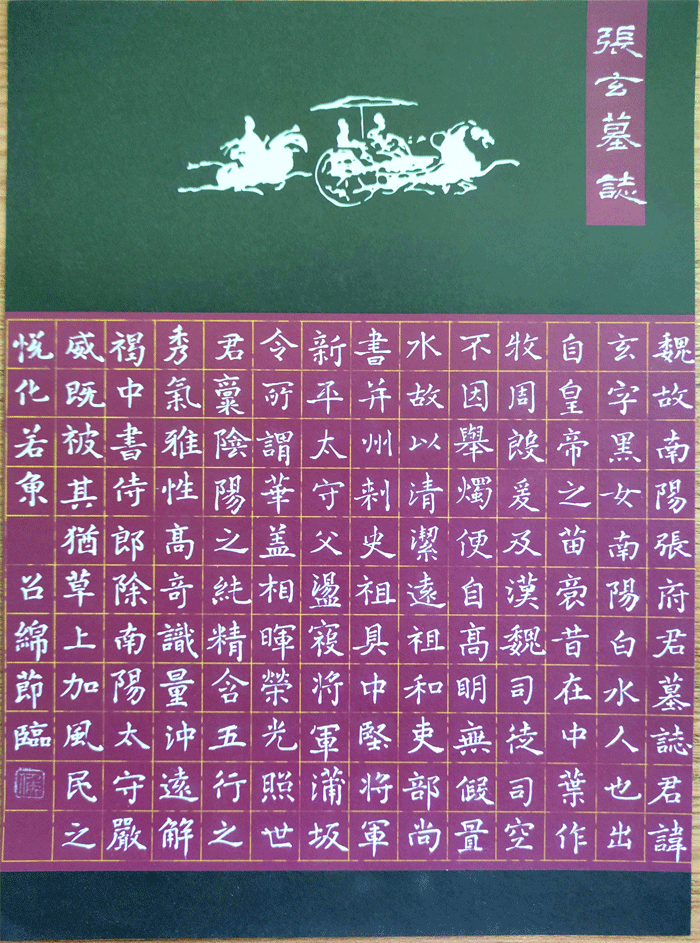 張玄墓誌
魏故南陽張府君墓誌君諱
玄字黑女南陽白水人也出
自皇帝之苗裔昔在中葉作
牧周殷爰及漢魏司徒司空
不因舉燭便自高明無假置
水故以清潔遠祖和吏部尚
書并州刺史祖具中堅將軍
新平太守父盪寇將軍蒲坂
令所謂華盖相暉榮光照世
君稟陰陽之純精含五行之
秀氣雅性高奇識量沖遠解
褐中書侍郎除南陽太守嚴
威既被其猶草上加風民之
悅化若魚 召綿節臨